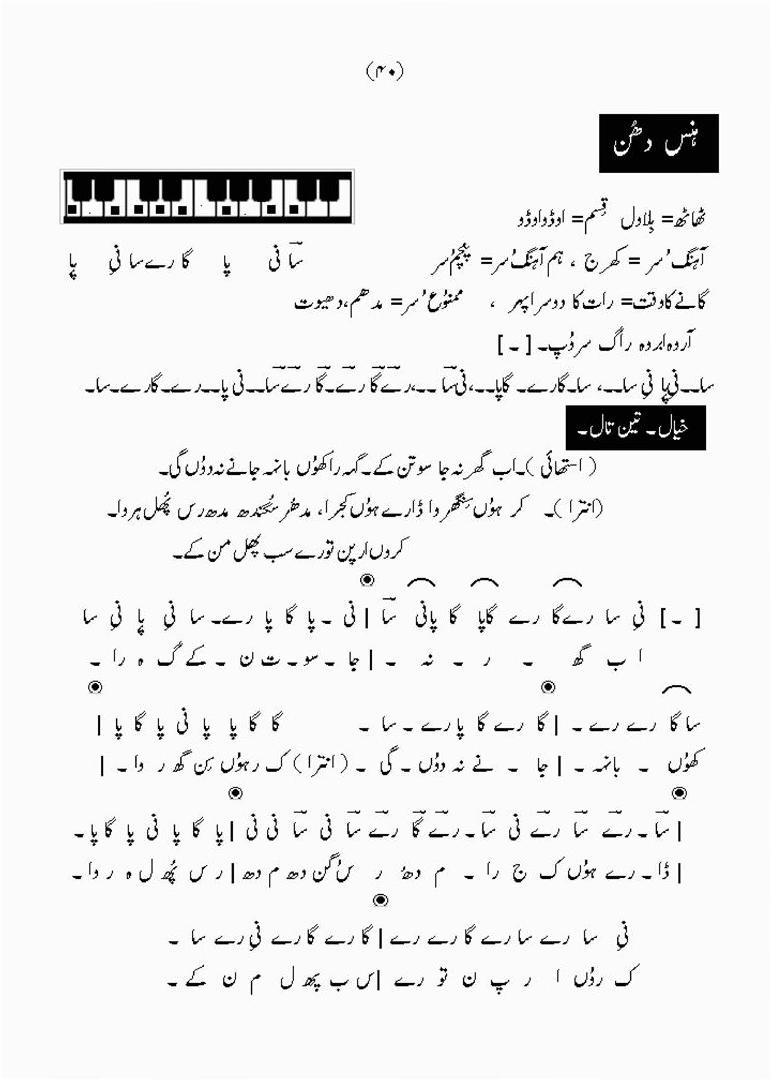 (۴۰)
ہنس دھُن
ٹھاٹھ= بِلاول قِسم= اوڈواوڈو
آہنگ سُر = کھرج ، ہم آہنگ سُر= پنچم سُر سا نی پا گا رے سا نِی پا
گانے کا وقت= رات کا دوسرا پہر ، ممنُوع سُر= مدھم،دھیوت
آروہ ابروہ راگ سروُپ۔ [ ۔ ]
سا۔۔نی پا نی سا۔۔، سا۔گارے۔ گاپا۔۔،نی سا ۔۔،رے گا رے۔گا رے سا۔۔نی پا۔۔رے۔گارے۔سا۔
خیال۔ تین تال۔
(استھائی)۔اب گھر نہ جا سوتن کے۔گہہ راکھوُں بانہہ جانے نہ دوُں گی۔
(انترا)۔ کر ہوُں سِنگھروا ڈارے ہوُں کجرا، مدھُر سُگندھ مدھ رس پھُل ہروا۔
کروں ارپن تورے سب پھل من کے۔
[ ۔ ] نی سا رےگا رے گاپا گا پانی سا | نی ۔ پا گا پا رے۔ سا نی پا نی سا
ا ب گھ ۔ ر ۔ نہ ۔ | جا ۔ سو ۔ ت ن ۔ کے گ ہ را ۔
ساگا رے رے ۔ | گا رے گا پا رے ۔ سا ۔ گا گا پا پا نی پا گا پا |
کھوُں ۔ بانہہ ۔ | جا ۔ نے نہ دوُں ۔ گی ۔ (انترا) ک ر ہوُں سِن گھ ر وا ۔ |
| سا ۔ رے سا رے نی سا ۔ رے گا رے سا نی سا نی نی | پا گا پا نی پا گا پا ۔
| ڈا ۔ رے ہوُں ک ج را ۔ م دھُ ر سُ گن دھ م دھ | ر س پھُ ل ہ ر وا ۔
نی سا رے سا رے گا رے رے | گا رے گا رے نی رے سا ۔
ک روُں ا ر پ ن تو رے | س ب پھ ل م ن کے ۔